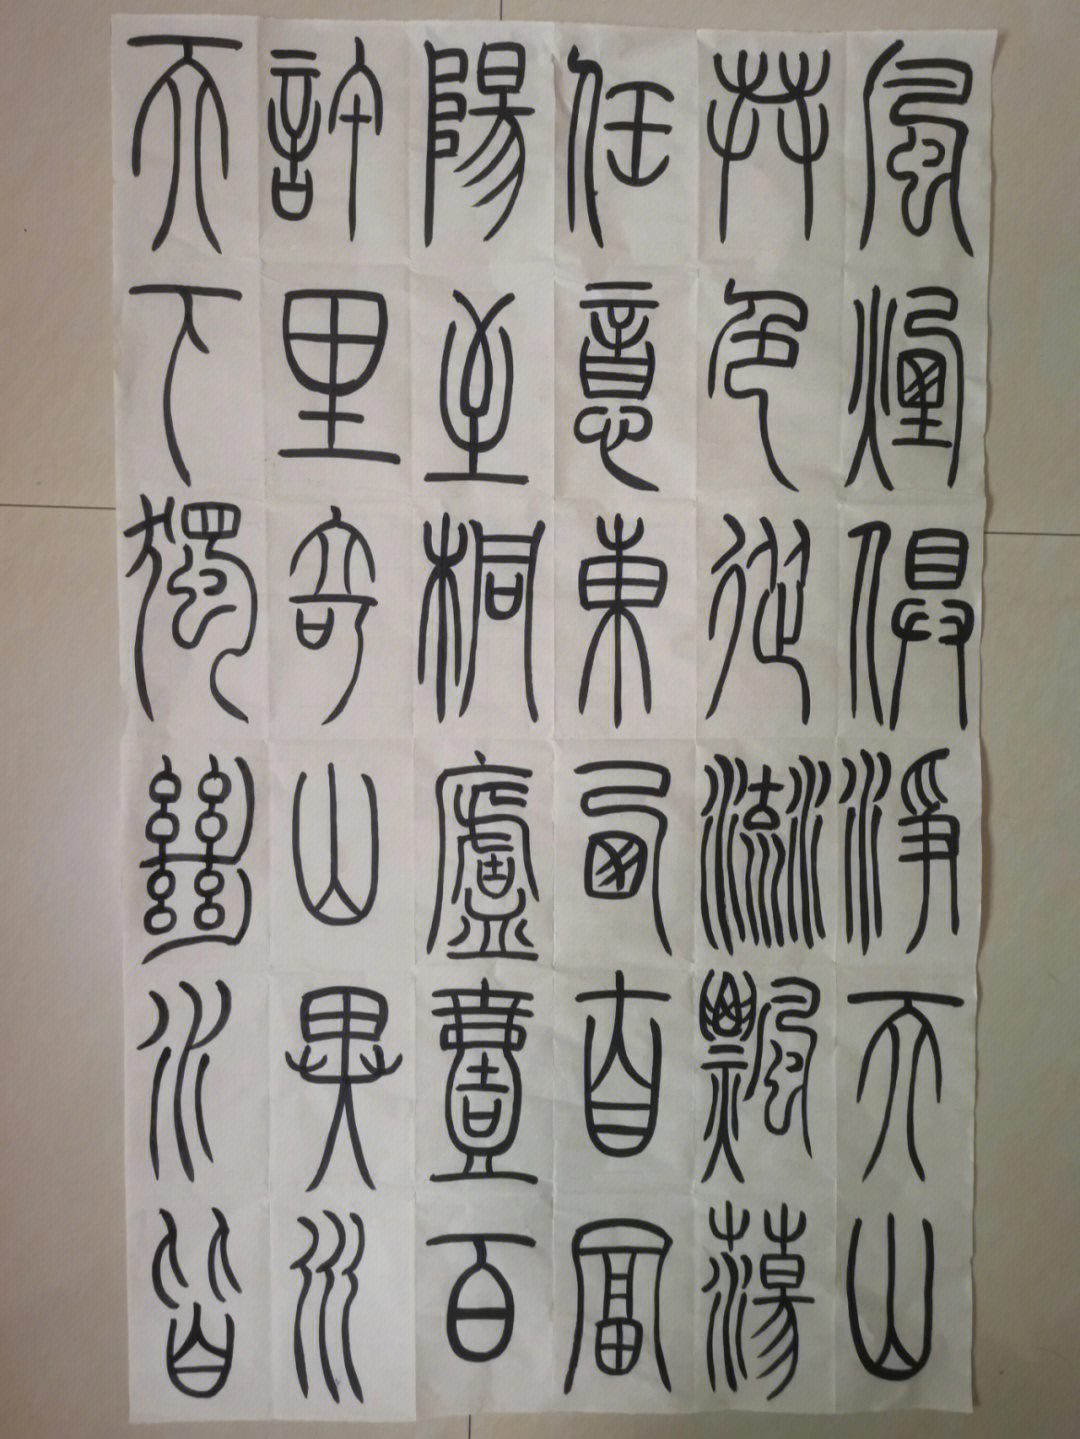 風煙俱淨天山
共色從流飄蕩
任意東西自富
陽至桐廬壹百
許里奇山異水
天下獨絕水皆